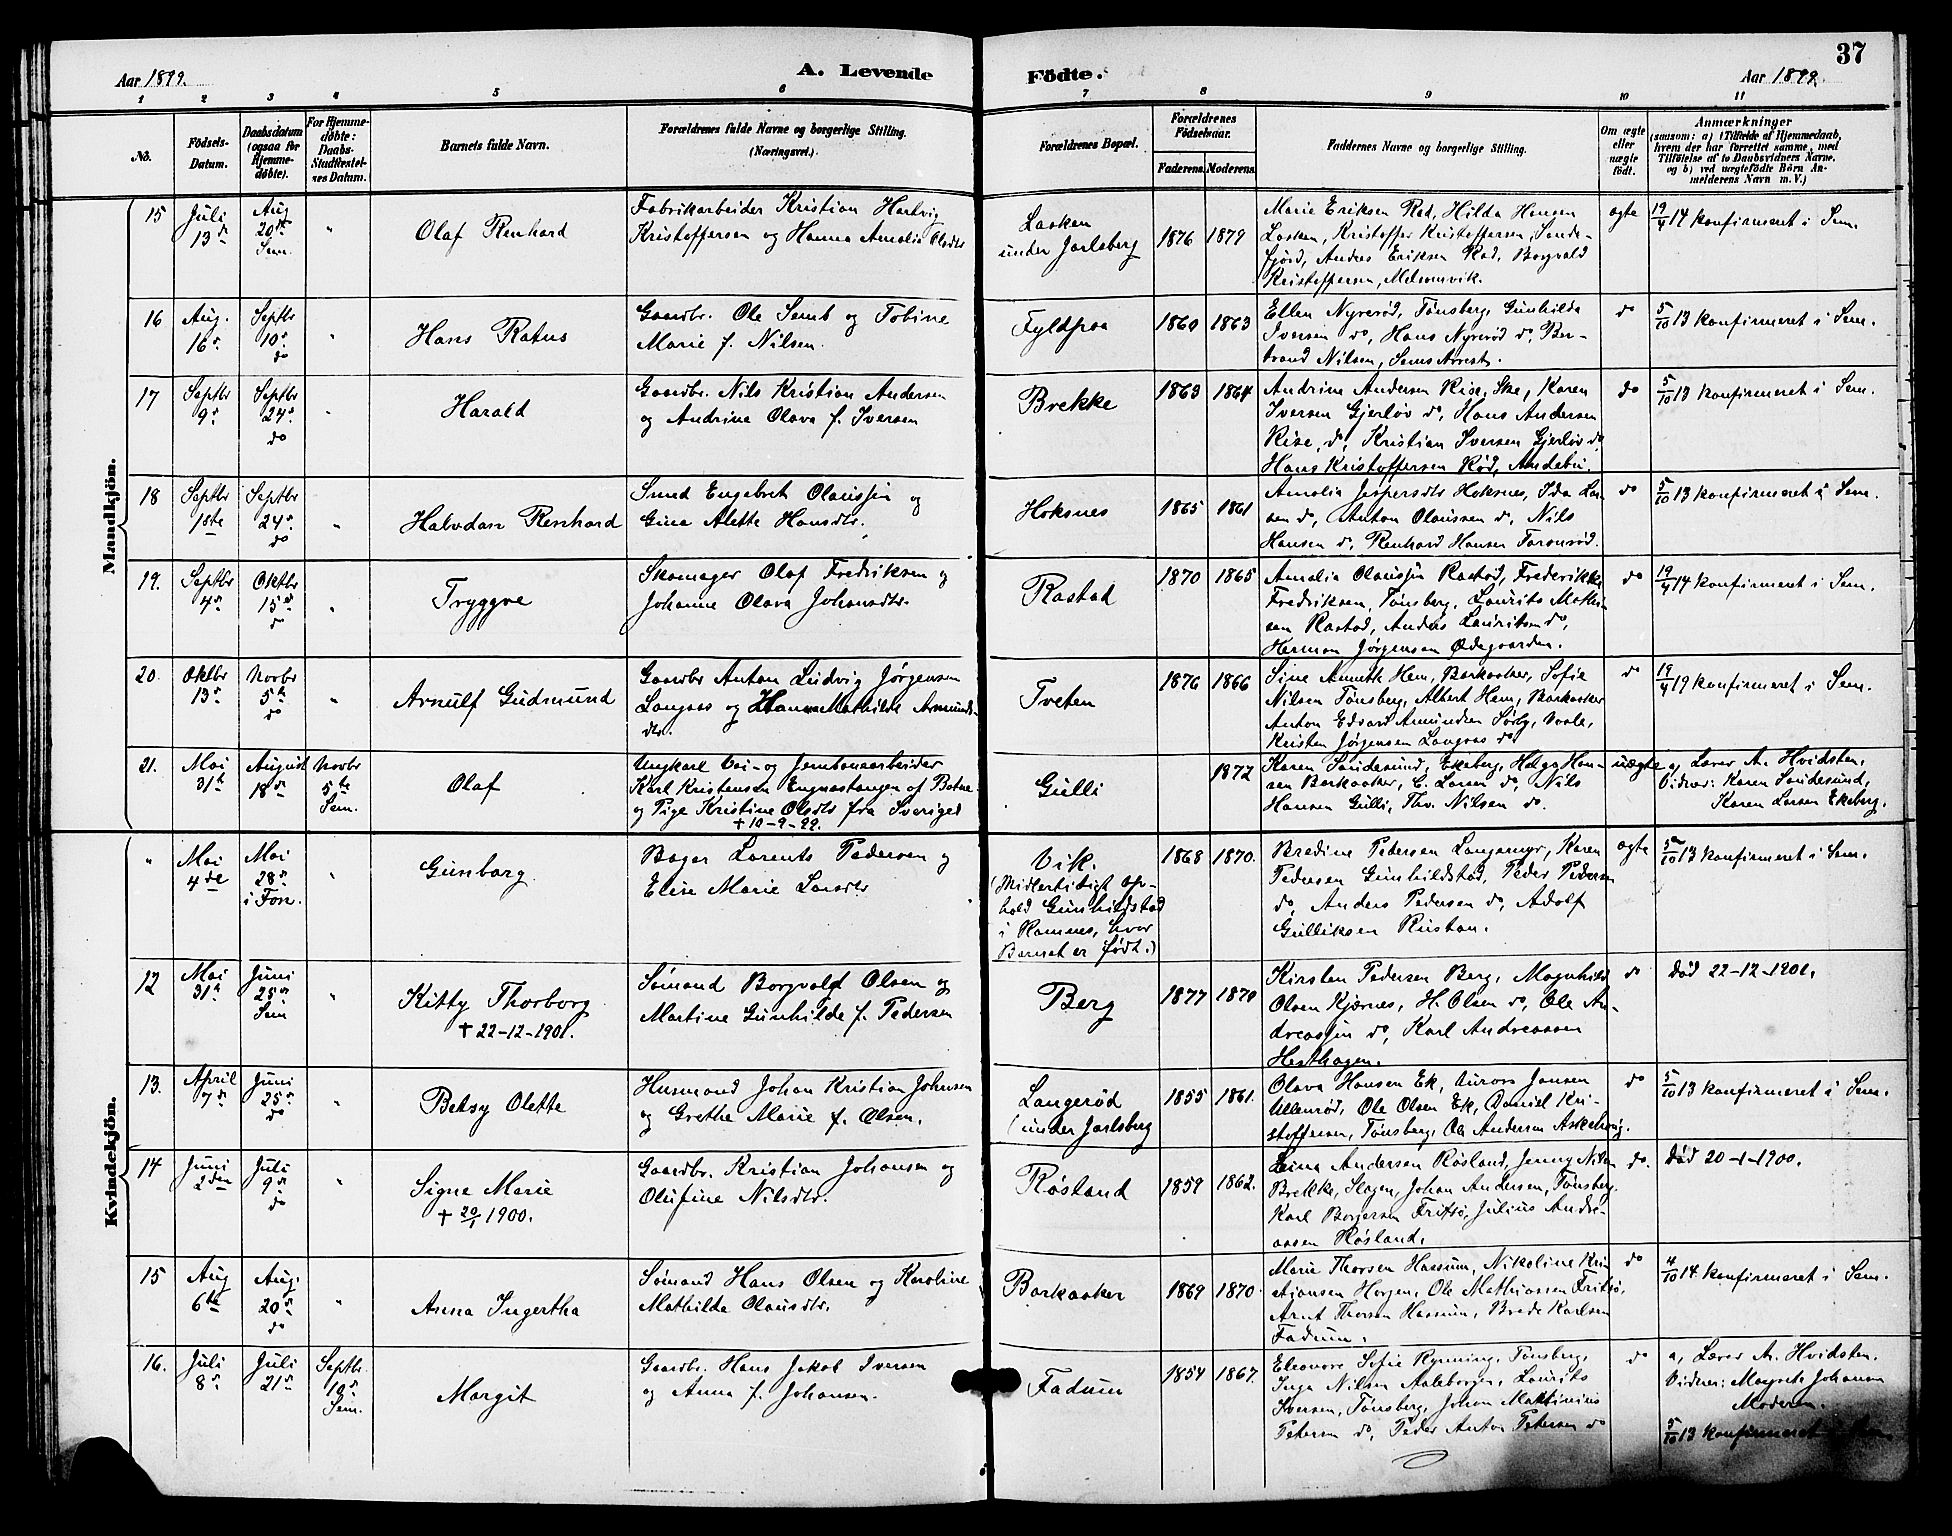 37
Aar 1899. A. Levende Födte. Aar 1899.
1 2 3 4 5 6 7 8 9 10 11
No. Födsels-Datum. Daabsdatum (ogsaa for Hjemmedöbte). For Hjemmedöbte: Daabs-Stadfæstelsens Datum. Barnets fulde Navn. Forældrenes fulde Navne og borgerlige Stilling. (Næringsvei.) Forældrenes Bopæl. Forældrenes Födselsaar. Faderens. Moderens. Faddernes Navne og borgerlige Stilling. Om ægte eller uægte født. Anmærkninger (saasom: a) i Tilfælde af Hjemmedaab, hvem der har forrettet samme, med Tilföielse af to Daabsvidners Navne, og b) ved uægtefödte Börn Anmelderens Navn m. V.)
Mandkjön.
15 Juli 13de Aug 20de Sem. " Olaf Renhard
Fabrikarbeider Kristian Hartvig
Kristoffersen og Hanna Amalia Olsdtr
Lasken
under Jarlsberg
1876 1879
Marie Eriksen Rød, Hilda Hansen
Lasken, Kristoffer Kristoffersen, Sande-
fjord, Andreas Eriksen Rød, Borgvald
Kristoffersen, Melsomvik.
ægte 19/4 14 konfirmeret i Sem.
16 Aug. 16de Septbr 10de do " Hans Ratus
Gaardbr. Ole Semb og Tobine
Marie f. Nilsen.
Fyldpaa
1860 1863
Ellen Nyrerød, Tønsberg, Gunhilda
Iversen do, Hans Nyrerød do, Ber-
trand Nilsen, Sems Arrest.
do 5/10 13 konfirmeret i Sem.
17 Septbr 9de Septbr 24de do " Harald
Gaardbr. Nils Kristian Andersen
og Andrine Olava f. Iversen
Brekke
1863 1864
Andrine Andersen Rise, Ske, Karen
Iversen Gjerløv do, Hans Andersen
Rise, do, Kristian Iversen Gjerløv do
Hans Kristoffersen Rød, Andebu.
do 5/10 13 konfirmeret i Sem.
18 Septbr 1ste Septbr 24de do " Halvdan Renhard
Smed Engebret Olaussen og
Gina Alette Hansdtr.
Hoksnes
1865 1861
Amalia Jespersdtr Hoksnes, Ida Lar-
sen do, Anton Olaussen do, Nils
Hansen do, Renhard Hansen
do 5/10 13 konfirmeret i Sem.
19. Septbr 4de Oktbr 15de do " Tryggve
Skomager Olaf Fredriksen og
Johanne Olava Johansdtr.
Rastad
1870 1865
Amalia Olaussen Rastad, Frederikke
Fredriksen, Tønsberg, Laurits Mathi-
sen Rastad, Anders Lauritsen do,
Herman Jørgensen Ødegaarden.
do 19/4 14 konfirmeret i Sem.
20. Oktbr 13de Novbr 5te do " Arnulf Gudmund
Gaardbr Anton Ludvig Jørgensen
Langaas og Hanna Mathilde Amunds-
dtr.
Tveten
1876 1866
Sine Annette Hem, Barkaaker, Sofie
Nilsen Tønsberg, Albert Hem, Barkaaker
Anton Edvard Amundsen Sørby, Vaale,
Kristen Jørgensen Langaas do
do 19/4 19 konfirmeret i Sem.
21. Mai 31te August 18de Novbr 5te Sem. Olaf
Ungkarl Vei- og Jernbanearbeider
Karl Kristensen Engnæstangen af Botne
og Pige Kristine Olsdtr fra Sverige
† 10-9-99.
Gulli
1872
Karen Sandesund, Ekeberg, Helga Han-
sen Barkaaker, C. Larsen do, Nils
Hansen Gulli, Thv. Nilsen do.
uægte a, Lærer A. Hvidsten.
Vidner: Karen Sandesund,
Karen Larsen Ekeberg.
Kvindekjön.
" Mai 4de Mai 28de i Fon. " Gunborg.
Bager Lorents Pedersen og
Elise Marie Larsdtr
Vik.
(Midlertidigt op-
hold Gunhildstad
i Ramnes, hvor
Barnet er født.)
1868 1870.
Bredine Pedersen Langemyr, Karen
Pedersen Gunhildstad, Peder Pedersen
do, Anders Pedersen do, Adolf
Gulliksen Rustan.
ægte 5/10 13 konfirmeret i Sem.
12 Mai 31te Juni 25de Sem " Kitty Thorborg
† 22-12-1901.
Sømand Borgvald Olsen og
Martine Gunhilde f. Pedersen
Berg
1877 1870
Kirsten Pedersen Berg, Magnhild
Olsen Kjærnes, H. Olsen do, Ole An-
dreassen do, Karl Andreassen
Hesthagen.
do død 22-12-1901.
13. April 7de Juni 25de do " Betsy Olette
Husmand Johan Kristian Johnsen
og Grethe Marie f. Olsen.
Langerød
(under Jarlsberg
1855 1861.
Olava Hansen Ek, Aurora Jansen
Ullenrød, Ole Olsen Ek, Daniel Kri-
stoffersen, Tønsberg, Ole Andersen Askehaug.
do 5/10 13 konfirmeret i Sem.
14 Juni 2den Juli 9de do " Signe Marie
† 20/1 1900.
Gaardbr. Kristian Johansen og
Olufine Nilsdtr.
Røsland
1859 1862.
Lina Andersen Røsland, Jenny Nilsen
Brekke, Slagen, Johan Andersen, Tønsberg.
Karl Borgersen Fritsø, Julius Andre-
assen Røsland.
do. død 20-1-1900.
15 Aug 6te Aug. 20de do " Anna Ingertha
Sømand Hans Olsen og Karoline
Mathilda Olausdtr.
Barkaaker
1869 1870.
Marie Thorsen Hassum, Nikoline Kri-
stiansen Horgen, Ole Mathiassen Fritsø,
Arnt Thorsen Hassum, Brede Karlsen
Fadum.
do 4/10 14 konfirmeret i Sem.
16. Juli 8de Juli 21de Septbr. 10de Sem. Margit
Gaardbr. Hans Jakob Iversen
og Anna f. Johansen.
Fadum
1854 1867.
Eleonore Sofie Rynning, Tønsberg,
Inga Nilsen Aaleborgen, Laurits
Iversen, Tønsberg, Johan Martinius
Petersen do, Peder Anton Petersen do
do a, Lærer A. Hvidsten.
Vidner: Magrete Johansen
Moderen.
5/10 13 konfirmeret i Sem.